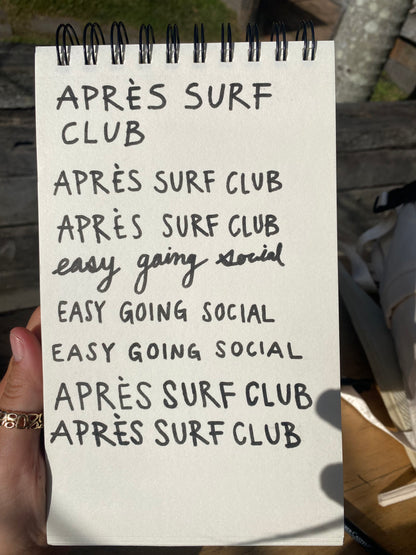 APRÈS SURF
CLUB
APRÈS SURF CLUB
APRÈS SURF CLUB
easy going social
EASY GOING SOCIAL
EASY GOING SOCIAL
APRÈS SURF CLUB
APRÈS SURF CLUB